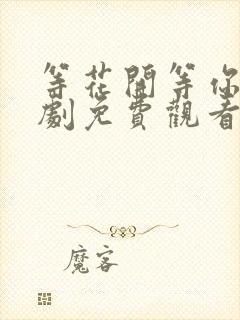 等花開等你
劇免費觀看
魔客